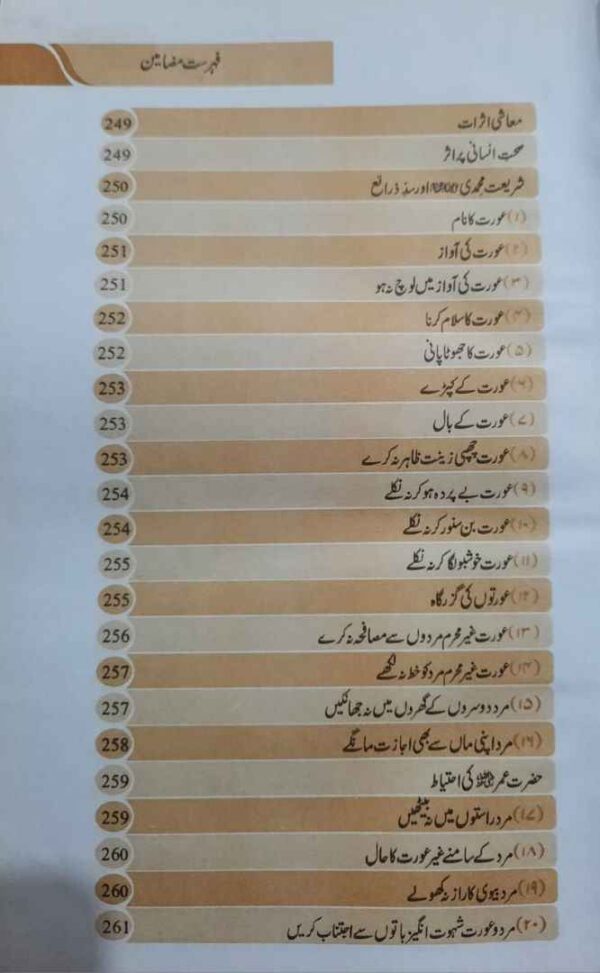 فہرست مضامین
معاشی اثرات 249
صحتِ انسانی پر اثر 249
شریعت محمدی ﷺ اور سدِ ذرائع 250
(۱) عورت کا نام 250
(۲) عورت کی آواز 251
(۳) عورت کی آواز میں لوچ نہ ہو 251
(۴) عورت کا سلام کرنا 252
(۵) عورت کا جھوٹا پانی 252
(۶) عورت کے کپڑے 253
(۷) عورت کے بال 253
(۸) عورت چھپی زینت ظاہر نہ کرے 253
(۹) عورت بے پردہ ہو کر نہ نکلے 254
(۱۰) عورت بن سنور کر نہ نکلے 254
(۱۱) عورت خوشبو لگا کر نہ نکلے 255
(۱۲) عورتوں کی گزرگاہ 255
(۱۳) عورت غیر محرم مردوں سے مصافحہ نہ کرے 256
(۱۴) عورت غیر محرم مرد کو خط نہ لکھے 257
(۱۵) مرد دوسروں کے گھروں میں نہ جھانکیں 257
(۱۶) مرد اپنی ماں سے بھی اجازت مانگے 258
حضرت عمر ؓ کی احتیاط 259
(۱۷) مرد راستوں میں نہ بیٹھیں 259
(۱۸) مرد کے سامنے غیر عورت کا حال 260
(۱۹) مرد بیوی کا راز نہ کھولے 260
(۲۰) مرد و عورت شہوت انگیز باتوں سے اجتناب کریں 261